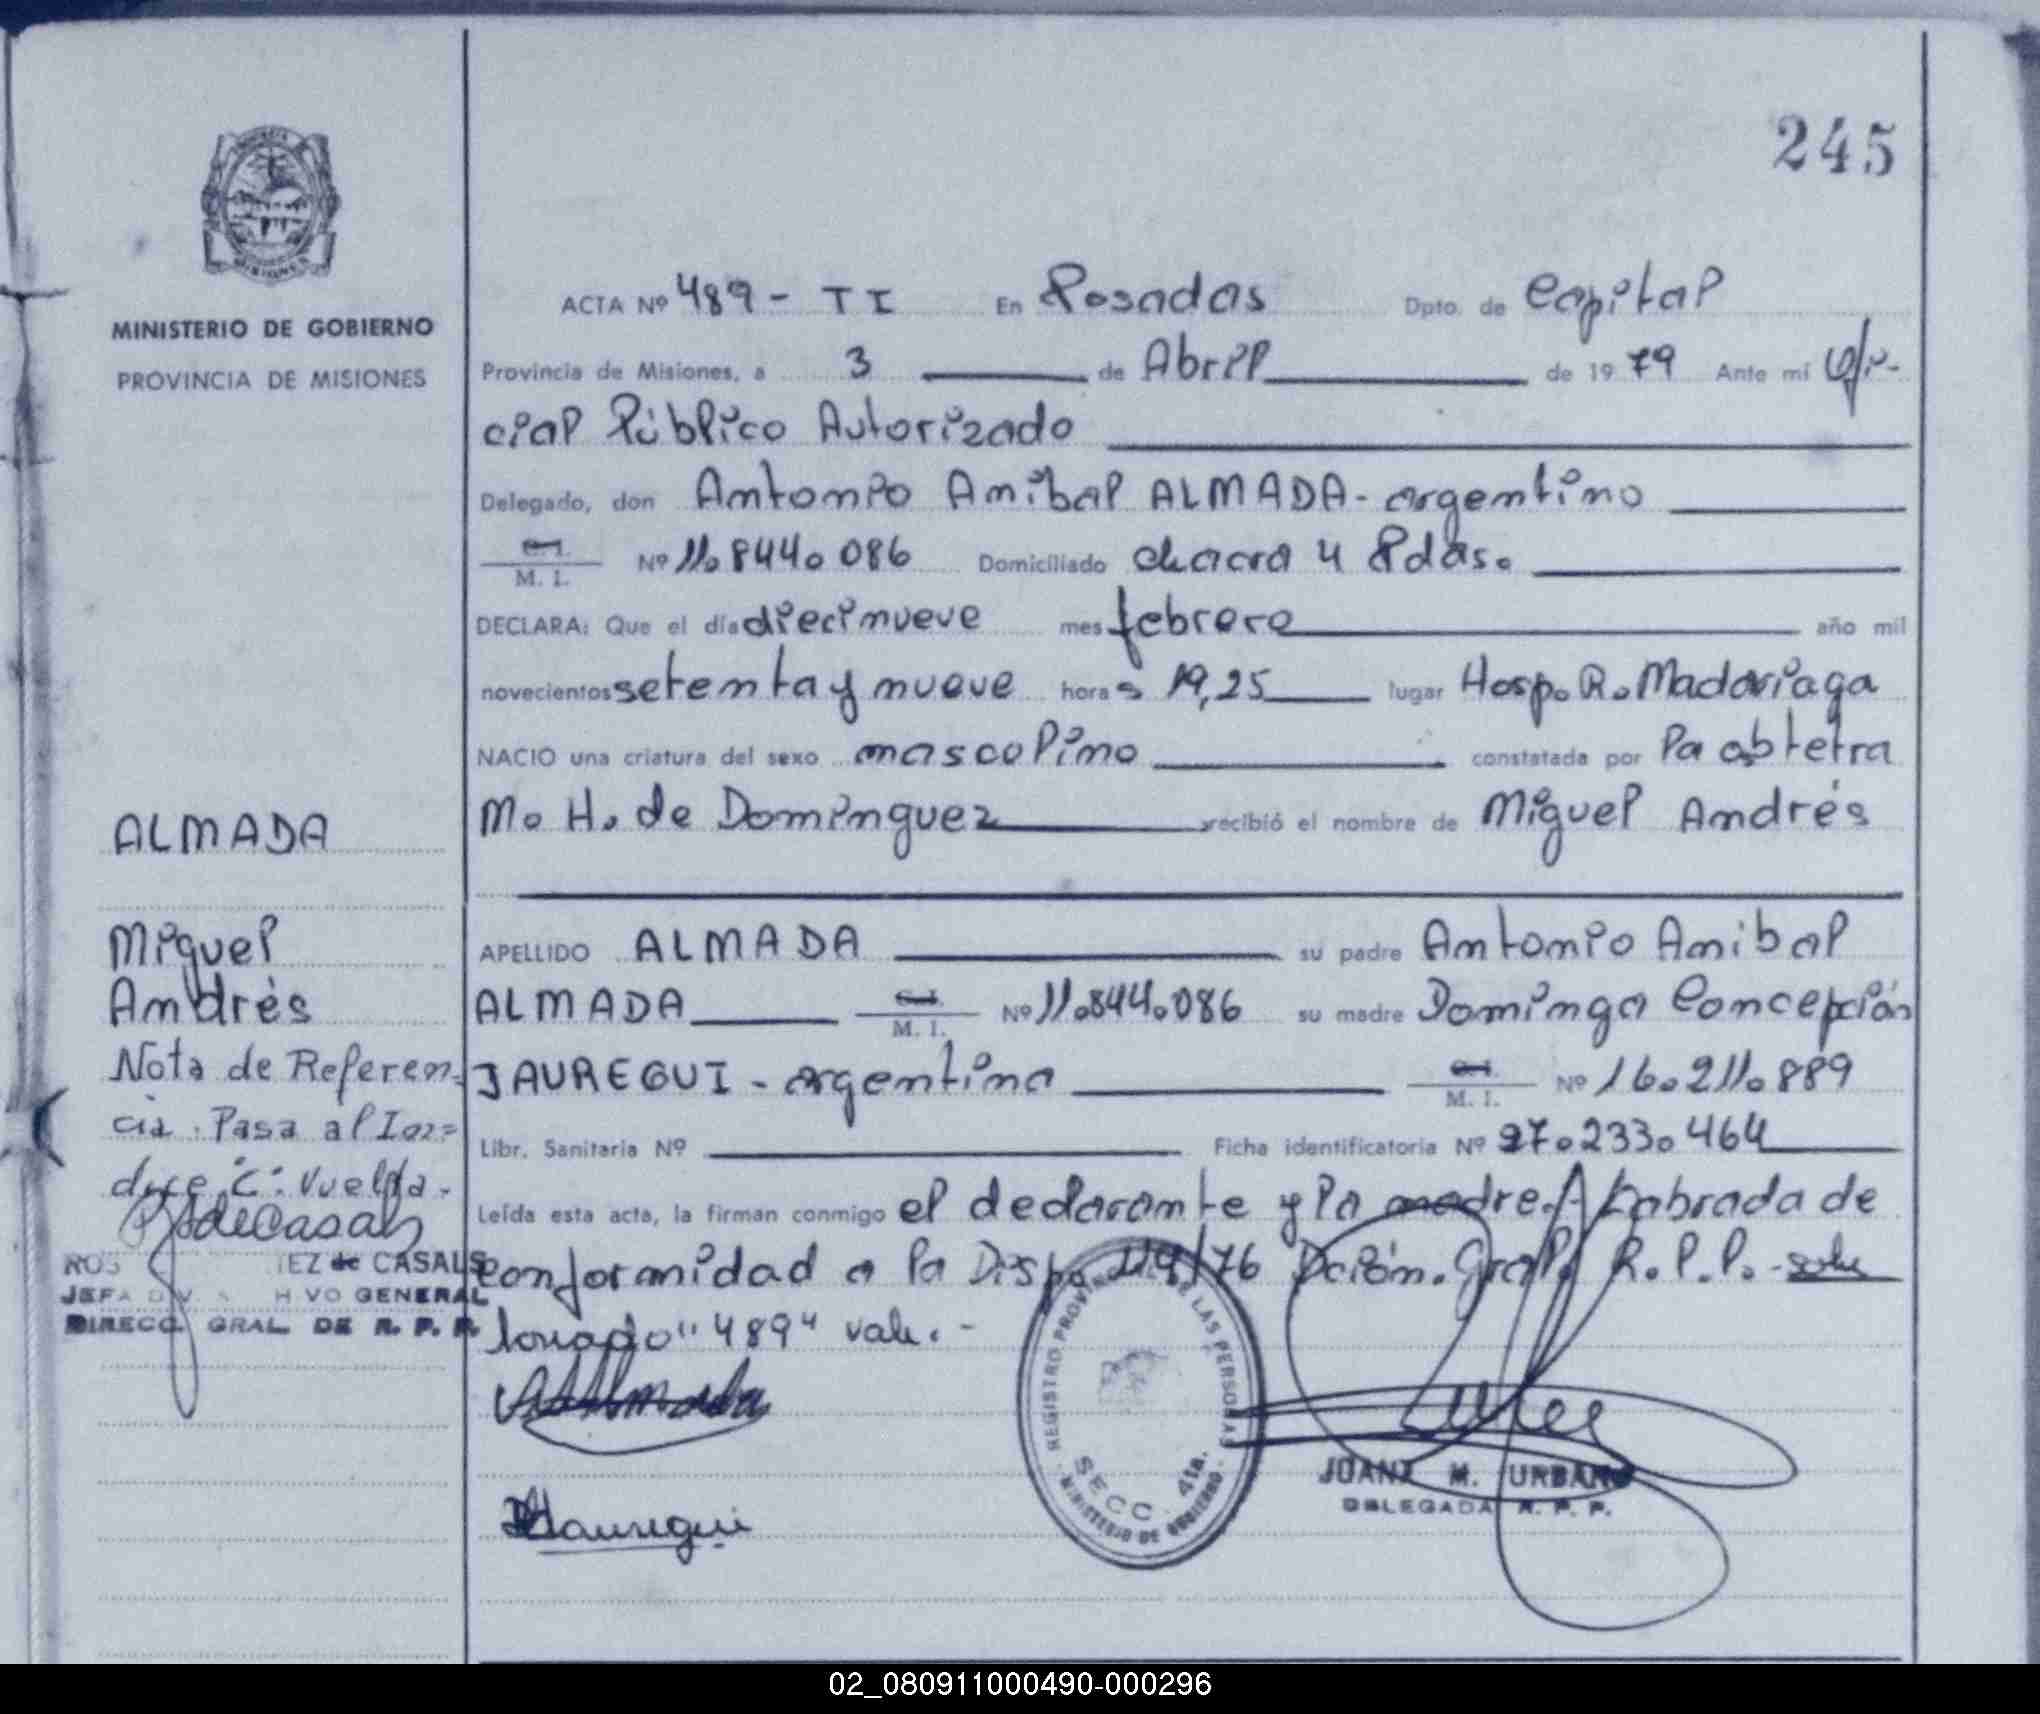 245
MINISTERIO DE GOBIERNO
PROVINCIA DE MISIONES
ACTA Nº 489 - T I En Posadas Dpto. de Capital
Provincia de Misiones, a 3 de Abril de 19 79 Ante mí Ofi-
cial Público Autorizado
Delegado, don Antonio Anibal ALMADA - argentino
C.I.
M. I. Nº 11.844.086 Domiciliado chacra 4 Pdas.
DECLARA: Que el día diecinueve mes febrero año mil
novecientos setenta y nueve horas 19,25 lugar Hosp. R. Madariaga
NACIO una criatura del sexo masculino constatada por la obtetra
M. H. de Dominguez recibió el nombre de Miguel Andrés
APELLIDO ALMADA su padre Antonio Anibal
ALMADA C.I.
M. I. Nº 11.844.086 su madre Dominga Concepción
JAUREGUI - argentina C.I.
M. I. Nº 16.211.889
Libr. Sanitaria Nº Ficha identificatoria Nº 27.233.464
Leída esta acta, la firman conmigo el declarante y la madre. Labrada de
conformidad a la Disp. 119/76 Dción. Gral. R.P.P. - sobre
"489" vale. -
ALMADA
Miguel
Andrés
Nota de Referen-
cia. Pasa al Ion=
dice "C": Vuelta.
deCasals
ROS EZ de CASALS
JEFA DIV. HIVO GENERAL
DIRECC. GRAL. DE R. P. P.
Almada
Jauregui
REGISTRO PROVINCIAL DE LAS PERSONAS
SECC. 4ta.
MINISTERIO DE GOBIERNO
JUANA M. URBANO
DELEGADA R. P. P.
02_080911000490-000296